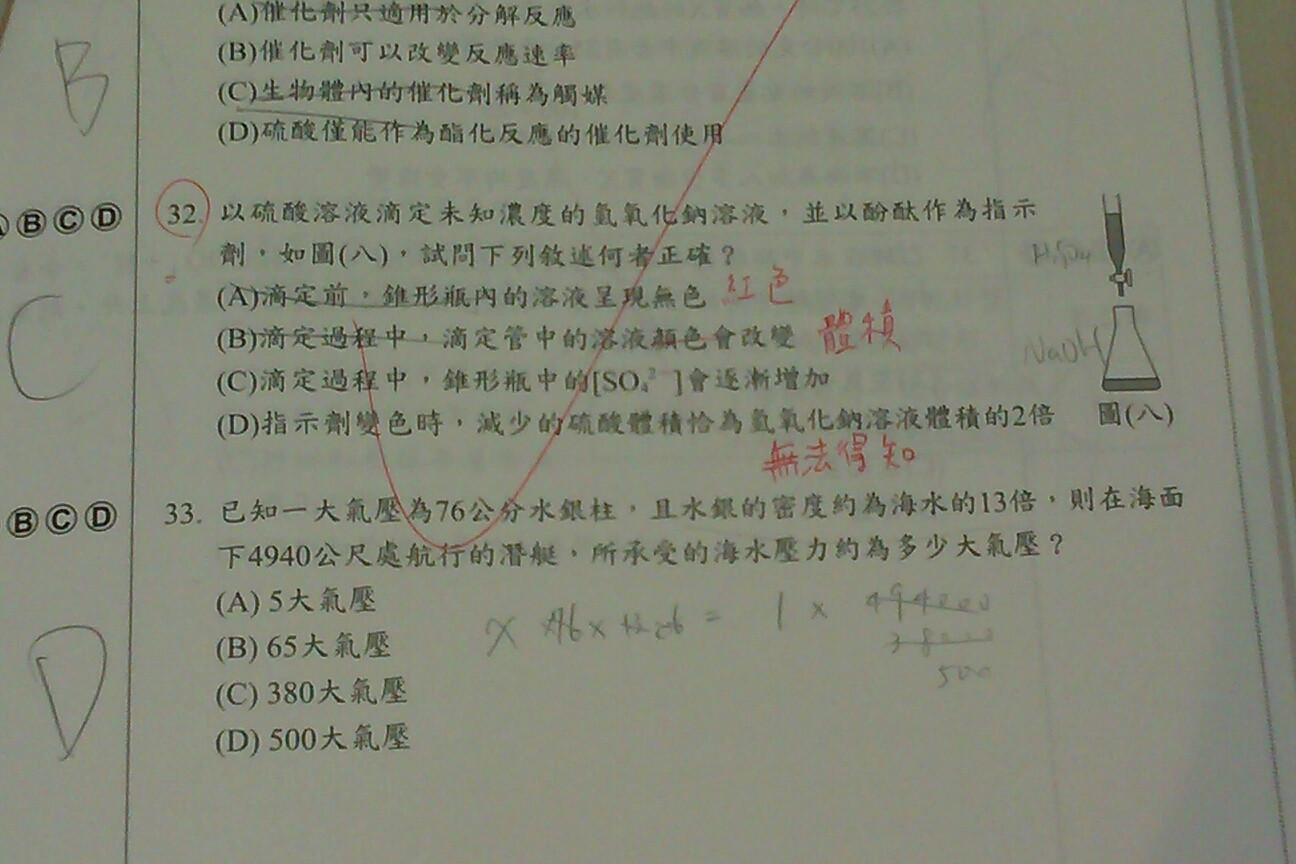 (A)催化劑只適用於分解反應
B
(B)催化劑可以改變反應速率
(C)生物體內的催化劑稱為觸媒
(D)硫酸僅能作為酯化反應的催化劑使用
Ⓑ Ⓒ Ⓓ
32. 以硫酸溶液滴定未知濃度的氫氧化鈉溶液，並以酚酞作為指示
劑，如圖(八)，試問下列敘述何者正確？
(A)滴定前，錐形瓶內的溶液呈現無色 紅色
(B)滴定過程中，滴定管中的溶液顏色會改變 體積
C
NaOH
(C)滴定過程中，錐形瓶中的[SO₄²⁻]會逐漸增加
(D)指示劑變色時，減少的硫酸體積恰為氫氧化鈉溶液體積的2倍
圖(八)
無法得知
Ⓑ Ⓒ Ⓓ
33. 已知一大氣壓為76公分水銀柱，且水銀的密度約為海水的13倍，則在海面
下4940公尺處航行的潛艇，所承受的海水壓力約為多少大氣壓？
(A) 5大氣壓
(B) 65大氣壓
D
(C) 380大氣壓
(D) 500大氣壓
= 1 × 494000
500